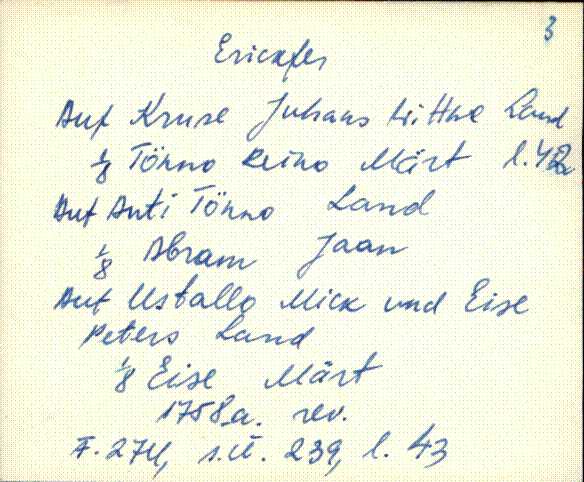 3
Ericafer
Auf Kruse Juhans Wittwe Land
1/8 Tönno Reino Märt l. 42
Auf Anti Tönno Land
1/8 Abram Jaan
Auf Usballo Mick und Eise
Peters Land
1/8 Eise Märt
1758.a. rev.
F. 274, s.ü. 239, l. 43